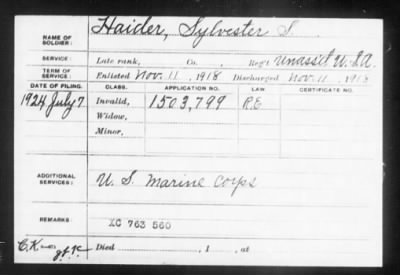 NAME OF SOLDIER: Haider, Sylvester S.
SERVICE: Late rank, Co. Reg't Unasic'd U.S.A.
TERM OF SERVICE: Enlisted Nov. 11, 1918 Discharged Nov. 11, 1918
DATE OF FILING. CLASS. APPLICATION NO. LAW CERTIFICATE NO.
1924 July 7 Invalid, 1503,799 R.E
Widow,
Minor,
ADDITIONAL SERVICES: U. S. Marine Corps
REMARKS: XC 763 560
Died , 1 , at